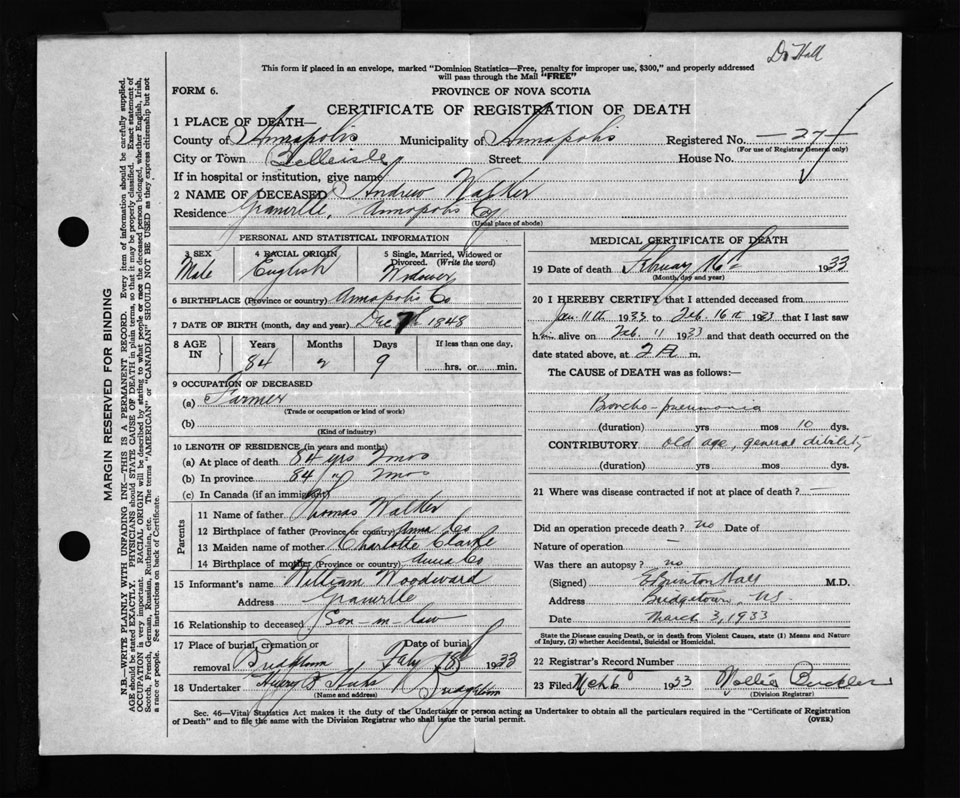 Dr Hall
This form if placed in an envelope, marked "Dominion Statistics—Free, penalty for improper use, $300," and properly addressed
will pass through the Mail "FREE"
FORM 6. PROVINCE OF NOVA SCOTIA
CERTIFICATE OF REGISTRATION OF DEATH
1 PLACE OF DEATH—
County of Annapolis Municipality of Annapolis Registered No. —27—
(For use of Registrar General only)
City or Town Belleisle Street House No.
If in hospital or institution, give name
2 NAME OF DECEASED Andrew Walker
Residence Granville, Annapolis Co
(Usual place of abode)
PERSONAL AND STATISTICAL INFORMATION
3 SEX 4 RACIAL ORIGIN 5 Single, Married, Widowed or
Divorced. (Write the word)
Male English Widower
6 BIRTHPLACE (Province or country) Annapolis Co
7 DATE OF BIRTH (month, day and year) Dec 7th 1848
8 AGE IN Years Months Days If less than one day,
84 2 9 hrs. or min.
9 OCCUPATION OF DECEASED
(a) Farmer
(Trade or occupation or kind of work)
(b)
(Kind of industry)
10 LENGTH OF RESIDENCE (in years and months)
(a) At place of death 84 yrs 2 mos
(b) In province 84 / 2 mos
(c) In Canada (if an immigrant)
Parents
11 Name of father Thomas Walker
12 Birthplace of father (Province or country) Anna Co
13 Maiden name of mother Charlotte Clarke
14 Birthplace of mother (Province or country) Anna Co
15 Informant's name William Woodward
Address Granville
16 Relationship to deceased Son-in-law
17 Place of burial, cremation or Date of burial
removal 1933
18 Undertaker
(Name and address)
MEDICAL CERTIFICATE OF DEATH
19 Date of death February 16th 1933
(Month, day and year)
20 I HEREBY CERTIFY that I attended deceased from
Jan. 11th 1933 to Feb. 16th 1933 that I last saw
him alive on Feb. 11 1933 and that death occurred on the
date stated above, at 2 A m.
The CAUSE of DEATH was as follows:—
Broncho-pneumonia
(duration) yrs mos 10 dys.
CONTRIBUTORY old age, general dibility
(duration) yrs mos dys.
21 Where was disease contracted if not at place of death? —
Did an operation precede death? no Date of
Nature of operation —
Was there an autopsy? no
(Signed) Hall M.D.
Address Bridgetown, N.S.
Date March 3, 1933
State the Disease causing Death, or in death from Violent Causes, state (1) Means and Nature
of Injury, (2) whether Accidental, Suicidal or Homicidal.
22 Registrar's Record Number
23 Filed Mch 6 1933
(Division Registrar)
Sec. 46—Vital Statistics Act makes it the duty of the Undertaker or person acting as Undertaker to obtain all the particulars required in the "Certificate of Registration
of Death" and to file the same with the Division Registrar who shall issue the burial permit. (OVER)
MARGIN RESERVED FOR BINDING
N.B.—WRITE PLAINLY WITH UNFADING INK—THIS IS A PERMANENT RECORD. Every item of information should be carefully supplied.
AGE should be stated EXACTLY. PHYSICIANS should STATE CAUSE OF DEATH in plain terms, so that it may be properly classified. Exact statement of
OCCUPATION is very important. RACIAL ORIGIN will be described by stating to what people or race the deceased person belonged, whether English, Irish,
Scotch, French, German, Russian, Ruthenian, etc. The terms "AMERICAN" or "CANADIAN" SHOULD NOT BE USED as they express citizenship but not
a race or people. See instructions on back of Certificate.